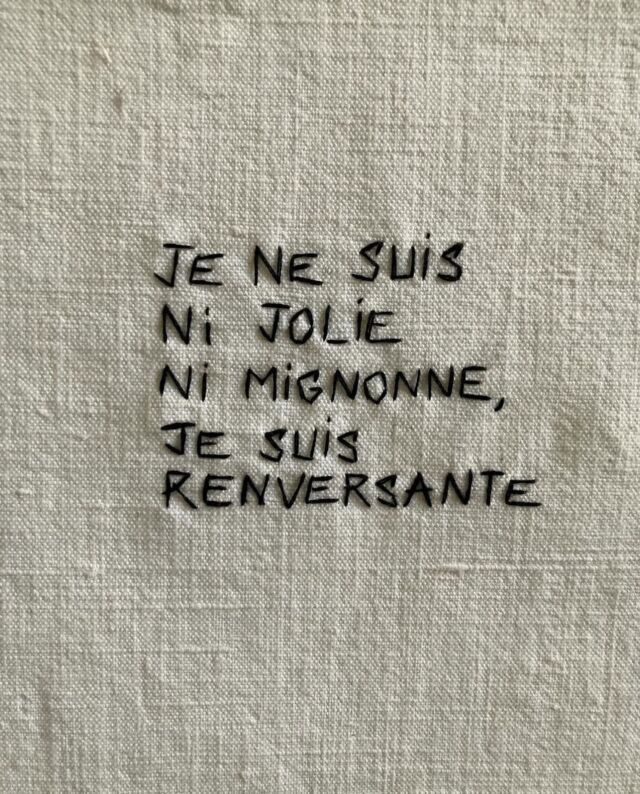 JE NE SUIS
Ni JOLIE
Ni MiGNONNE,
JE SUIS
RENVERSANTE